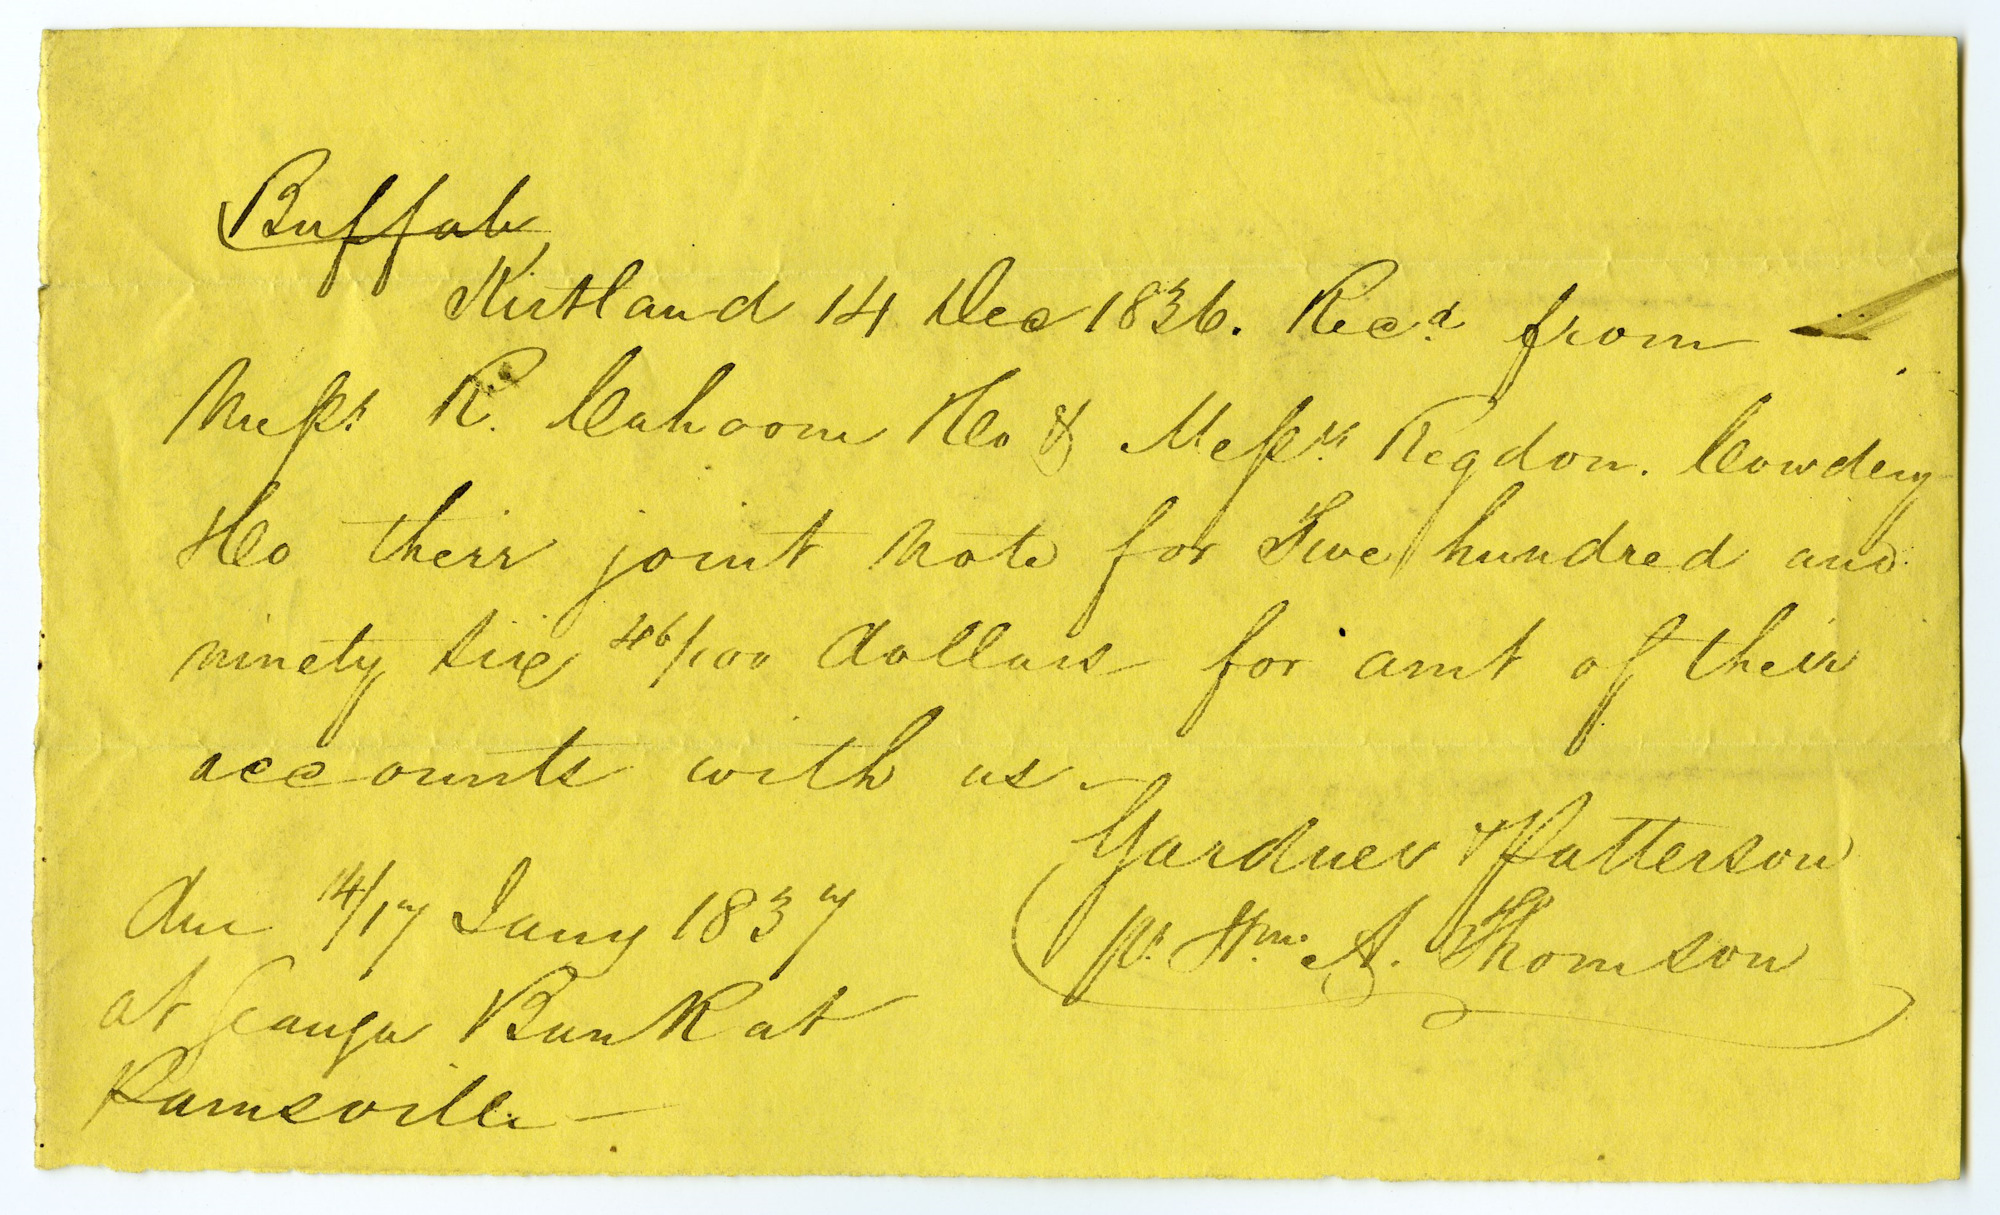 ~~Buffalo~~
Kirtland 14 Dec 1836. Recd from
Messrs R. Cahoom &Co & Messrs Rigdon. Cowdery
&Co their joint Note for Five hundred and
ninety six 46/100 dollars for amt of their
accounts with us.
Gardner & Patterson
pr. Wm. A. Thomson
due 14/17 Jany 1837
at Geauga Bank at
Painsville